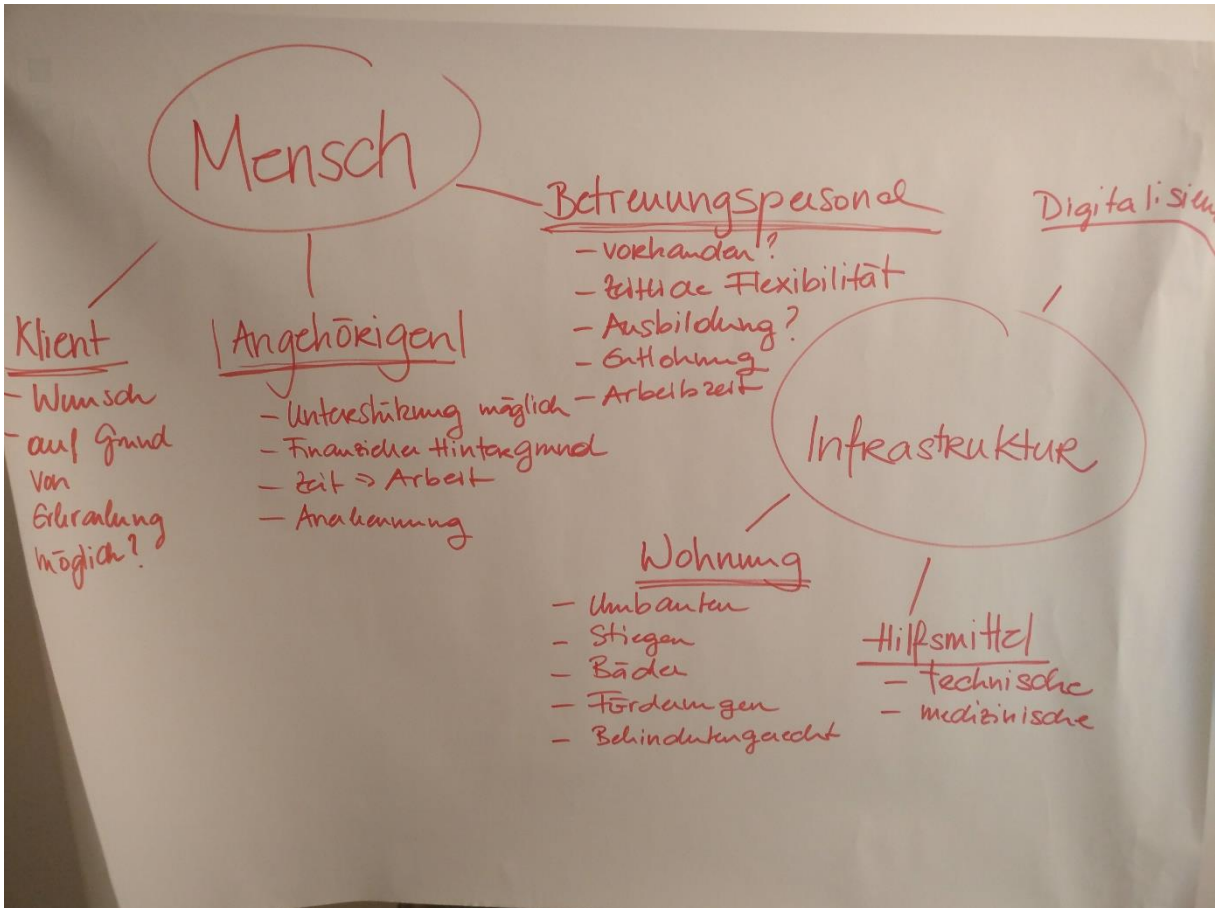 Mensch
Klient
- Wunsch
- auf Grund
von
Erkrankung
möglich?
Angehörigen
- Unterstützung möglich
- Finanzieller Hintergrund
- Zeit => Arbeit
- Anerkennung
Betreuungspersonal
- vorhanden?
- zeitliche Flexibilität
- Ausbildung?
- Entlohnung
- Arbeitszeit
Infrastruktur
Digitalisier
Wohnung
- Umbauten
- Stiegen
- Bäder
- Förderungen
- Behindertengerecht
Hilfsmittel
- technische
- medizinische